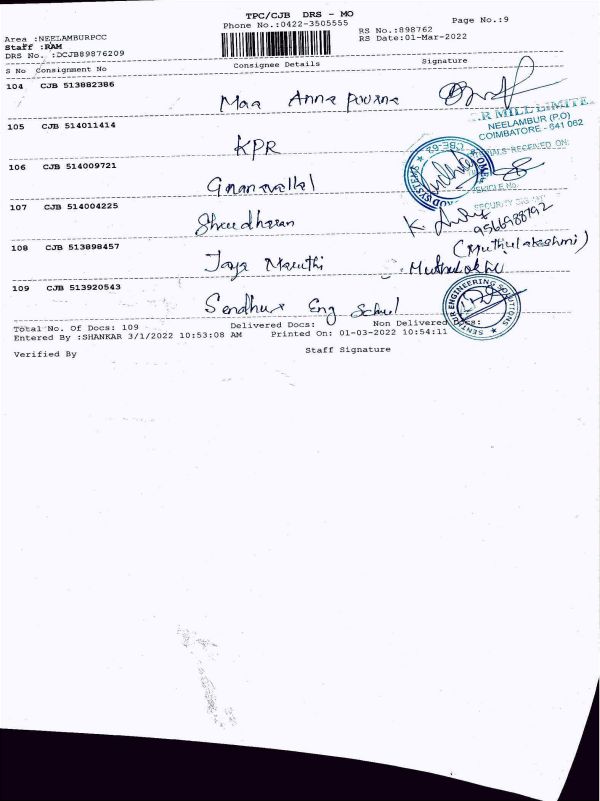 TPC/CJB DRS - MO
Phone No.:0422-3505555
Page No.:9
Area :NEELAMBURPCC
Staff :RAM
DRS No. :DCJB89876209
RS No.:898762
RS Date:01-Mar-2022
S No Consignment No Consignee Details Signature
104 CJB 513882386 Maa Annapoorna
.R MILL LIMITE
NEELAMBUR (P.O)
COIMBATORE - 641 062
105 CJB 514011414 KPR
RECEIVED ON:
CBE-62
SYSTEMS
VEHICLE No.
106 CJB 514009721
SECURITY
107 CJB 514004225
9566988792
(Muthulakshmi)
108 CJB 513898457 Jaya Maruthi
109 CJB 513920543 Sendhur Eng
ENGINEERING SOLUTIONS
Total No. Of Docs: 109 Delivered Docs: Non Delivered Docs:
Entered By :SHANKAR 3/1/2022 10:53:08 AM Printed On: 01-03-2022 10:54:11
Verified By Staff Signature